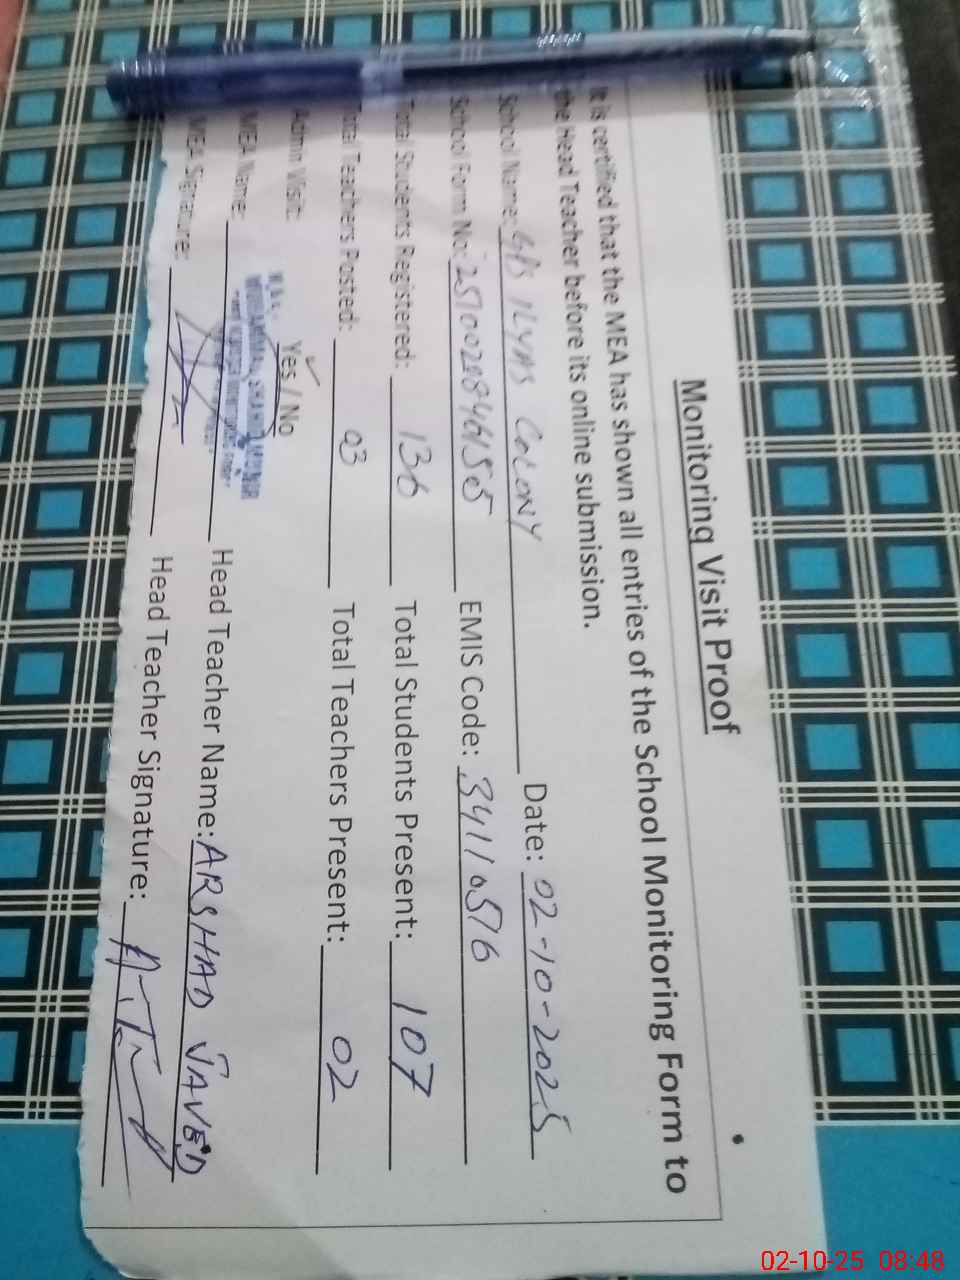 Monitoring Visit Proof
It is certified that the MEA has shown all entries of the School Monitoring Form to
the Head Teacher before its online submission.
School Name: G/S ILYAS COLONY Date: 02-10-2025
School Form No: EMIS Code: 34110516
Total Students Registered: 136 Total Students Present: 107
Total Teachers Posted: 03 Total Teachers Present: 02
Admin Visit: Yes / No
MEA Name: Head Teacher Name: ARSHAD JAVED
MEA Signature: Head Teacher Signature:
02-10-25 08:48